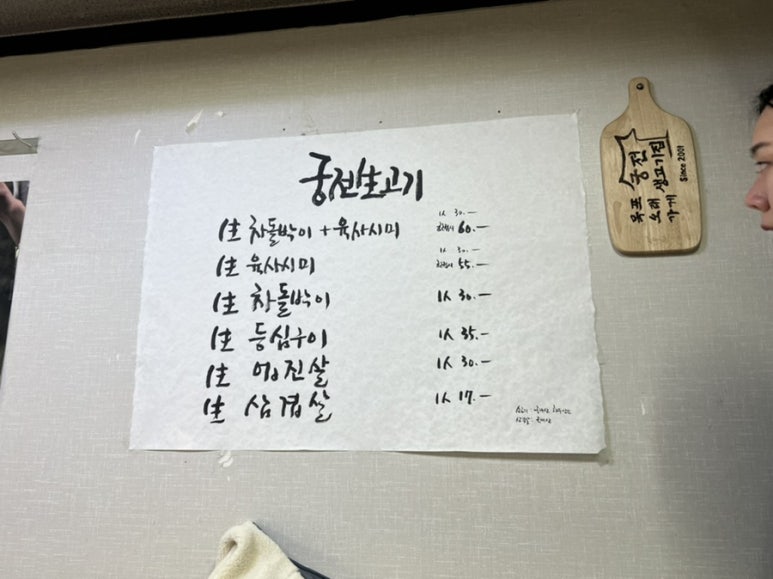 궁전生고기
生 차돌박이 + 육사시미 1人 30.-
60.-
生 육사시미 1人 30.-
55.-
生 차돌박이 1人 30.-
生 등심구이 1人 35.-
生 어진살 1人 30.-
生 삼겹살 1人 17.-
궁전
생고기집
Since 2001
목포
오래
가게